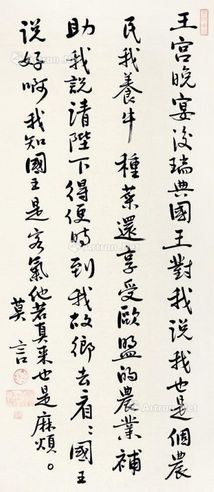 王宮晚宴後瑞典國王對我說我也是個農
民我養牛種菜還享受歐盟的農業補
助我說請陛下得便時到我故鄉去看〻國王
說好啊我知國王是客氣他若真來也是麻煩。
莫言